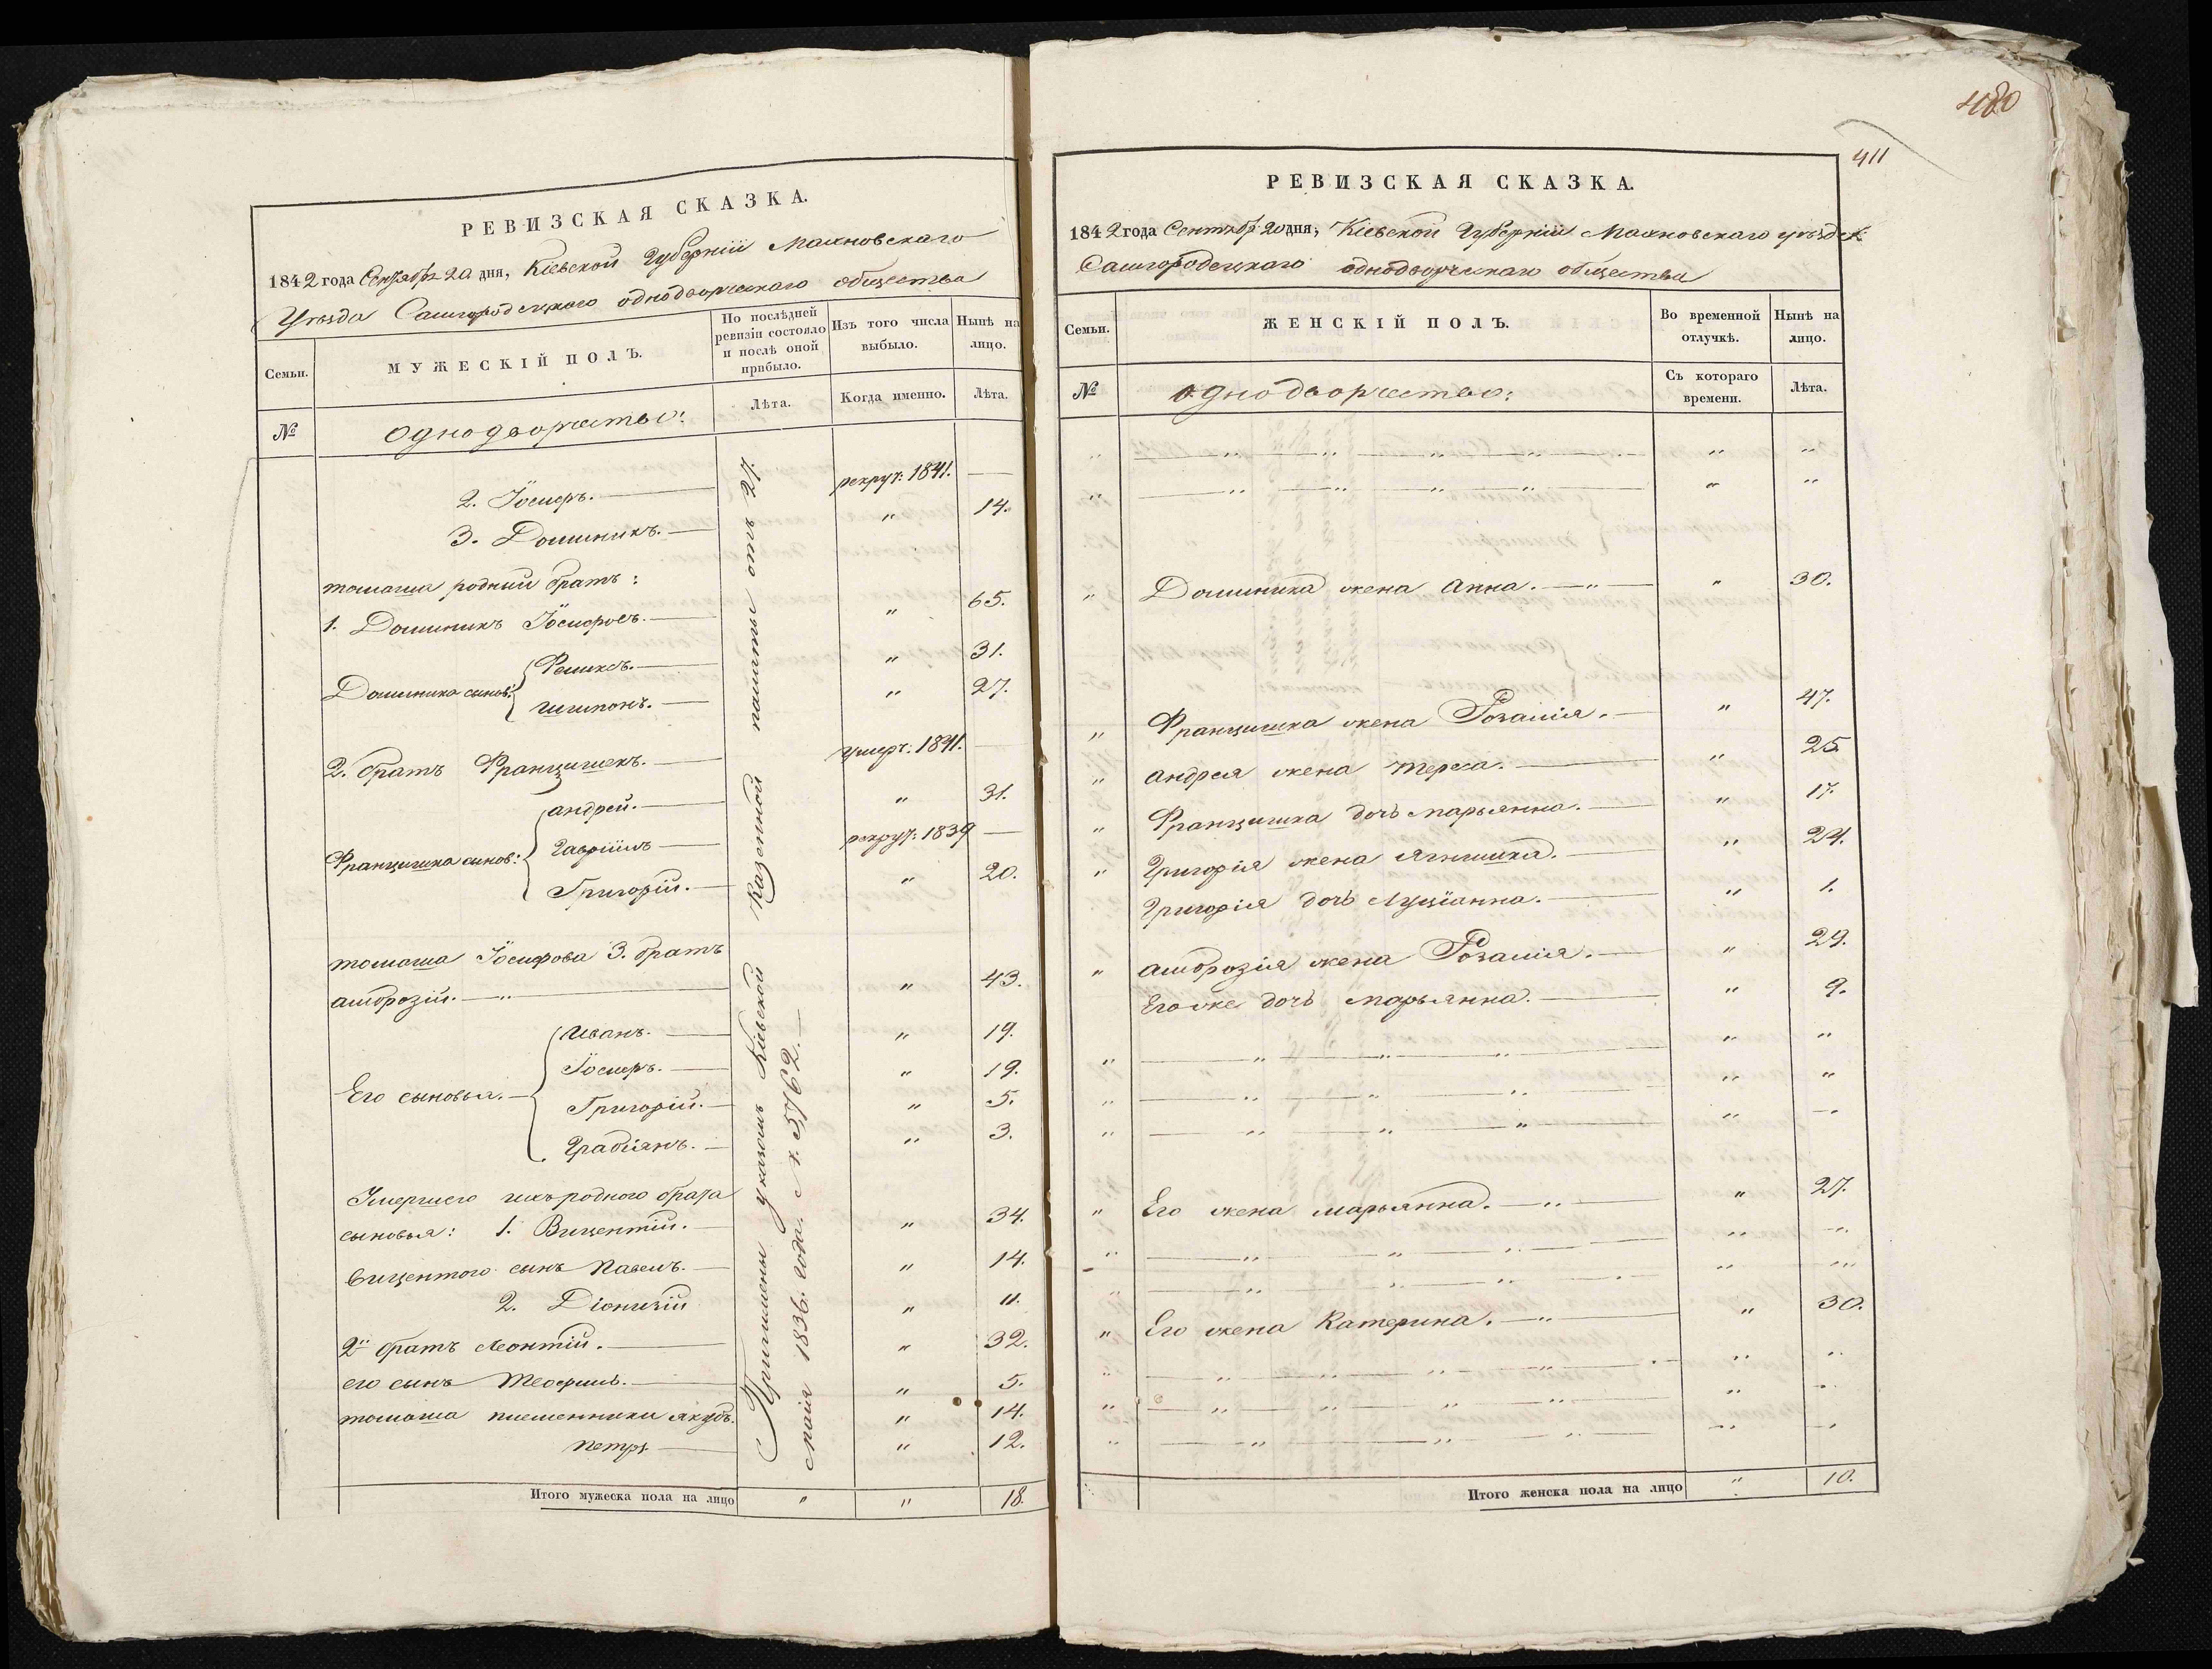 РЕВИЗСКАЯ СКАЗКА.
1842 года Сентября 20 дня, Кіевской Губерніи Махновскаго
Уѣзда Самгородецкаго однодворческаго общества
Семьи.
МУЖЕСКІЙ ПОЛЪ.
По послѣдней
ревизіи состояло
и послѣ оной
прибыло.
Изъ того числа
выбыло.
Нынѣ на
лицо.
№
Однодворчество:
Лѣта.
Когда именно.
Лѣта.
2. Іосифъ. рекрут: 1841. —
3. Доминикъ. " 14.
томаша родный братъ:
1. Доминикъ Іосифовъ. " 65.
Доминика сынов: Феликсъ. " 31.
Шимонъ. " 27.
2. братъ Францишекъ. умеръ: 1841. —
Францишка сынов: Андрей. " 31.
Гавріилъ рекрут: 1839 —
Григорій. " 20.
томаша Іосифова 3. братъ
амброзій. " 43.
Его сыновья. Иванъ. " 19.
Іосифъ. " 19.
Григорій. " 5.
Грабіянъ. " 3.
Умершего ихъ родного брата
сыновья: 1. Вицентій. " 34.
Вицентого сынъ Павелъ. " 14.
2. Діонизій " 11.
2й братъ Леонтій. " 32.
его сынъ Теофилъ. " 5.
томаша племенники Якубъ. " 14.
Петръ " 12.
Причислены указомъ Кіевской Казенной палаты отъ 27.
маія 1836. года. №. 5762.
Итого мужеска пола на лицо " " 18.
480
411
РЕВИЗСКАЯ СКАЗКА.
1842 года Сентябр 20 дня, Кіевской Губерніи Махновскаго уѣзда
Самгородецкаго однодворческаго общества
Семьи.
ЖЕНСКІЙ ПОЛЪ.
Во временной
отлучкѣ.
Нынѣ на
лицо.
№
Однодворчество:
Съ котораго
времени.
Лѣта.
" " " " " " "
" " " " " " "
" Доминика жена Анна. " " 30.
" Францишка жена Розалія. " 47.
" Андрея жена Тереса. " 25
" Францишка дочь Марьянна. " 17.
" Григорія жена Ягнишка. " 24.
Григорія дочь Луціанна. " 1.
" Амброзія жена Розалія. " 29.
Его же дочь Марьянна. " 9.
" " " " " "
" " " " " "
" " " " "
" Его жена Марьянна. " " 27.
" " " " " "
" " " " "
" Его жена Катерина. " " 30.
" " " " " "
" " " " " " "
" " " " " "
Итого женска пола на лицо " 10.